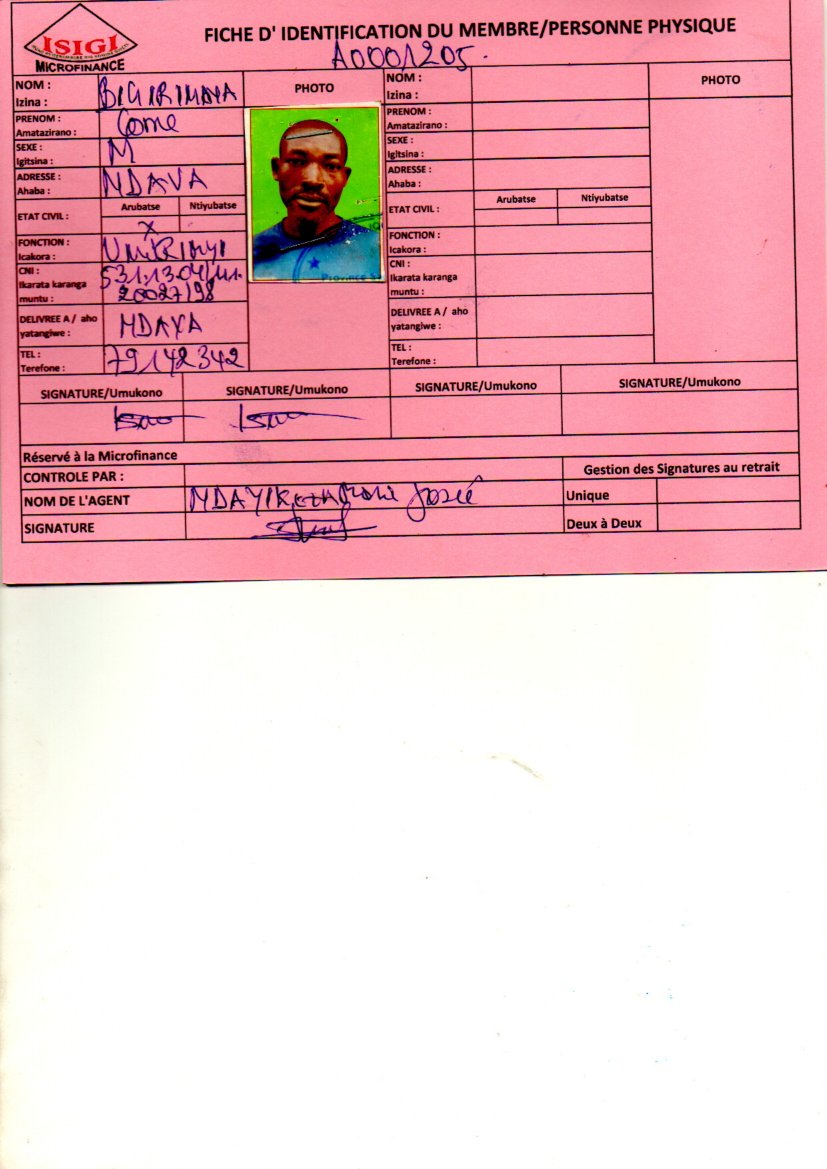 ISIGI
MICROFINANCE
FICHE D' IDENTIFICATION DU MEMBRE/PERSONNE PHYSIQUE
A0001205.
NOM :
Izina :
BIGIRIMANA
PHOTO
PRENOM :
Amatazirano :
Come
SEXE :
Igitsina :
M
ADRESSE :
Ahaba :
NDAVA
ETAT CIVIL :
Arubatse
Ntiyubatse
X
FONCTION :
Icakora :
UMURIMYI
CNI :
Ikarata karanga
muntu :
531.1304/
20027/98
DELIVREE A / aho
yatangiwe :
NDAVA
TEL :
Terefone :
79142342
Province
NOM :
Izina :
PHOTO
PRENOM :
Amatazirano :
SEXE :
Igitsina :
ADRESSE :
Ahaba :
ETAT CIVIL :
Arubatse
Ntiyubatse
FONCTION :
Icakora :
CNI :
Ikarata karanga
muntu :
DELIVREE A / aho
yatangiwe :
TEL :
Terefone :
SIGNATURE/Umukono
SIGNATURE/Umukono
SIGNATURE/Umukono
SIGNATURE/Umukono
Réservé à la Microfinance
CONTROLE PAR :
Gestion des Signatures au retrait
NOM DE L'AGENT
Josué
Unique
SIGNATURE
Deux à Deux